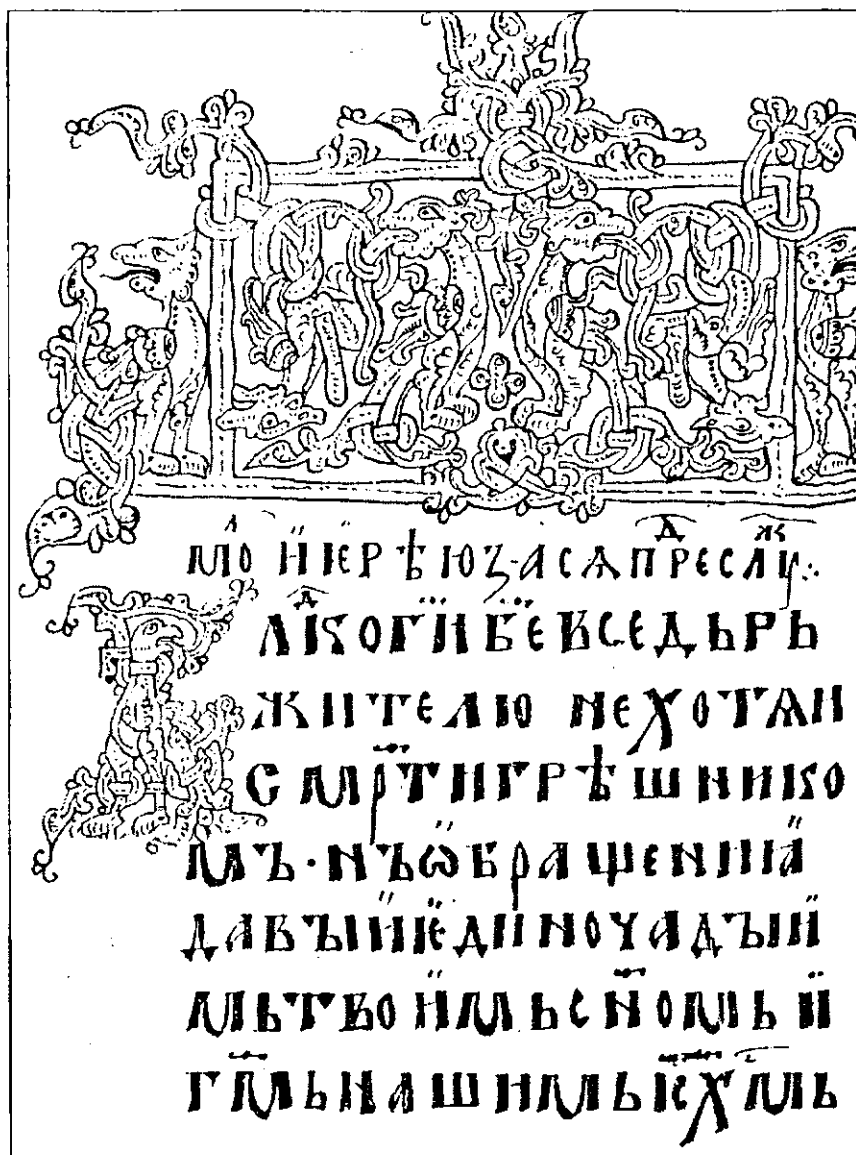 мл҃о ꙇ҆ꙇерѣю за сѧ прⷣеслꙋⷤ҇:
Влⷣко г҃и б҃е вседьрь
жителю не хотѧи
см҃рти грѣшнико
мъ · нъ ѡбращениꙗ
давъıи ѥдиночадъıи
мь твоимь сн҃омь и
г҃мь нашимь ıс҃ х҃мь